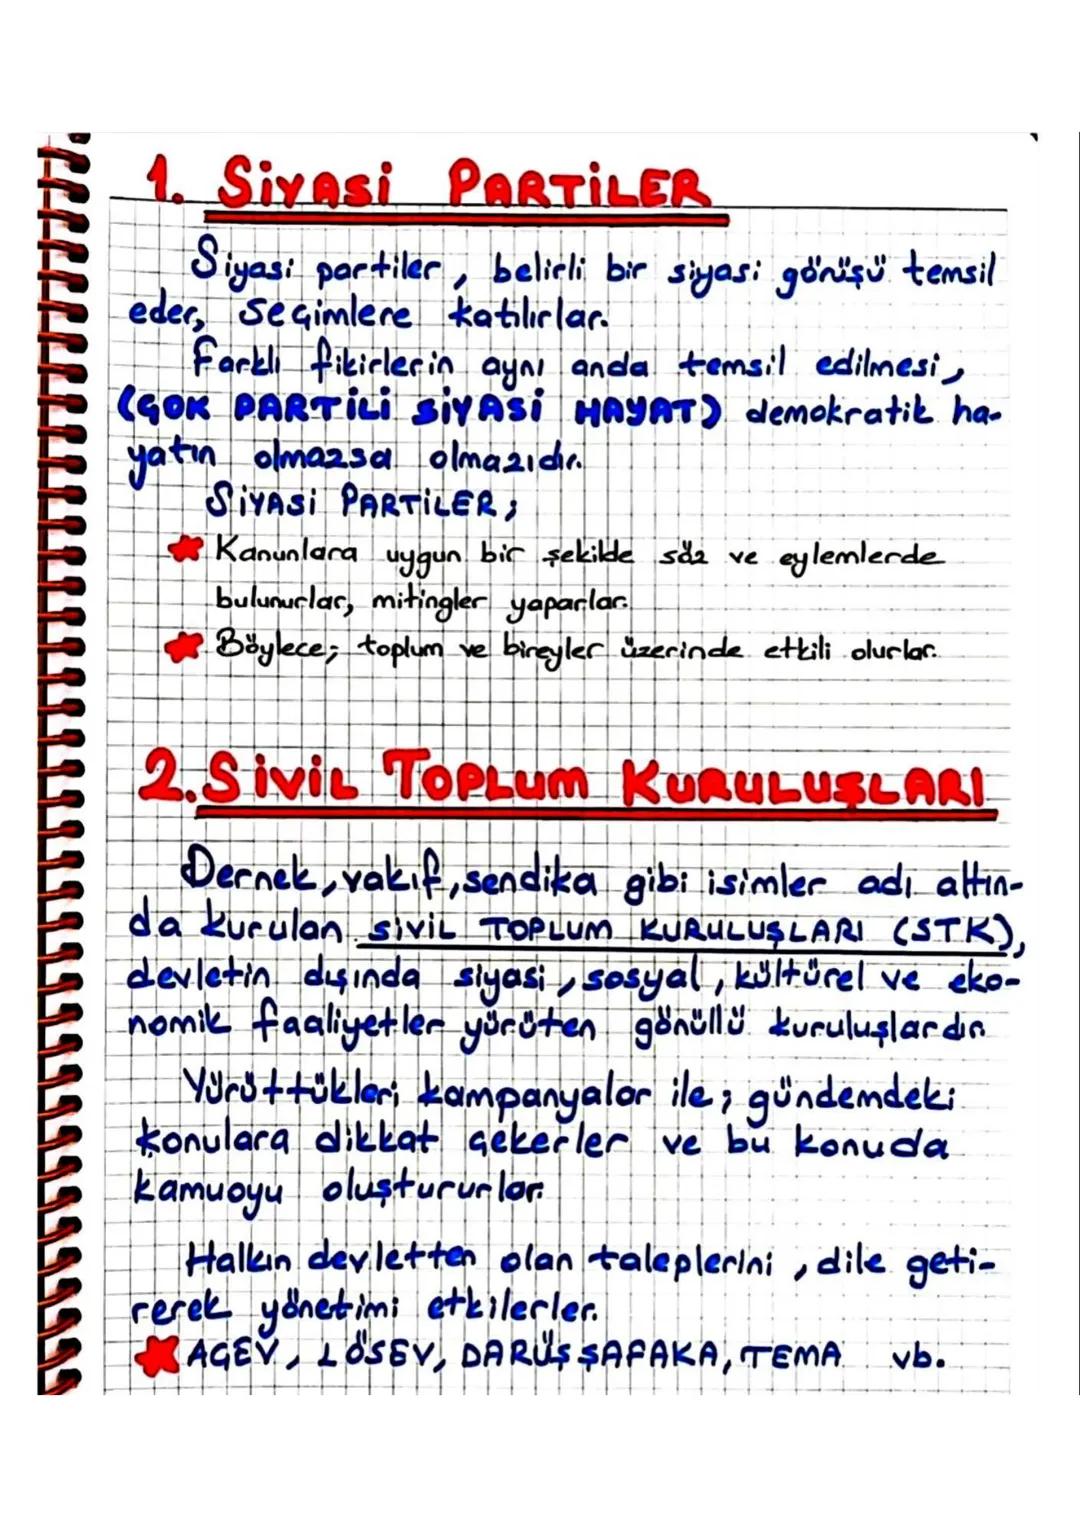 1. SİYASİ PARTİLER
Siyasi partiler, belirli bir siyasi görüşü temsil
eder, seçimlere katılırlar.
Farklı fikirlerin aynı anda temsil edilmesi,
(ÇOK PARTİLİ SİYASİ HAYAT) demokratik ha-
yatın olmazsa olmazıdır.
SİYASİ PARTİLER;
Kanunlara uygun bir şekilde söz ve eylemlerde
bulunurlar, mitingler yaparlar.
Böylece; toplum ve bireyler üzerinde etkili olurlar.
2. SİVİL TOPLUM KURULUŞLARI
Dernek, vakıf, sendika gibi isimler adı altın-
da kurulan SİVİL TOPLUM KURULUŞLARI (STK),
devletin dışında siyasi, sosyal, kültürel ve eko-
nomik faaliyetler yürüten gönüllü kuruluşlardır.
Yürüttükleri kampanyalar ile; gündemdeki
konulara dikkat çekerler ve bu konuda
kamuoyu oluştururlar.
Halkın devletten olan taleplerini, dile geti-
rerek yönetimi etkilerler.
AÇEV, LÖSEV, DARÜŞŞAFAKA, TEMA vb.